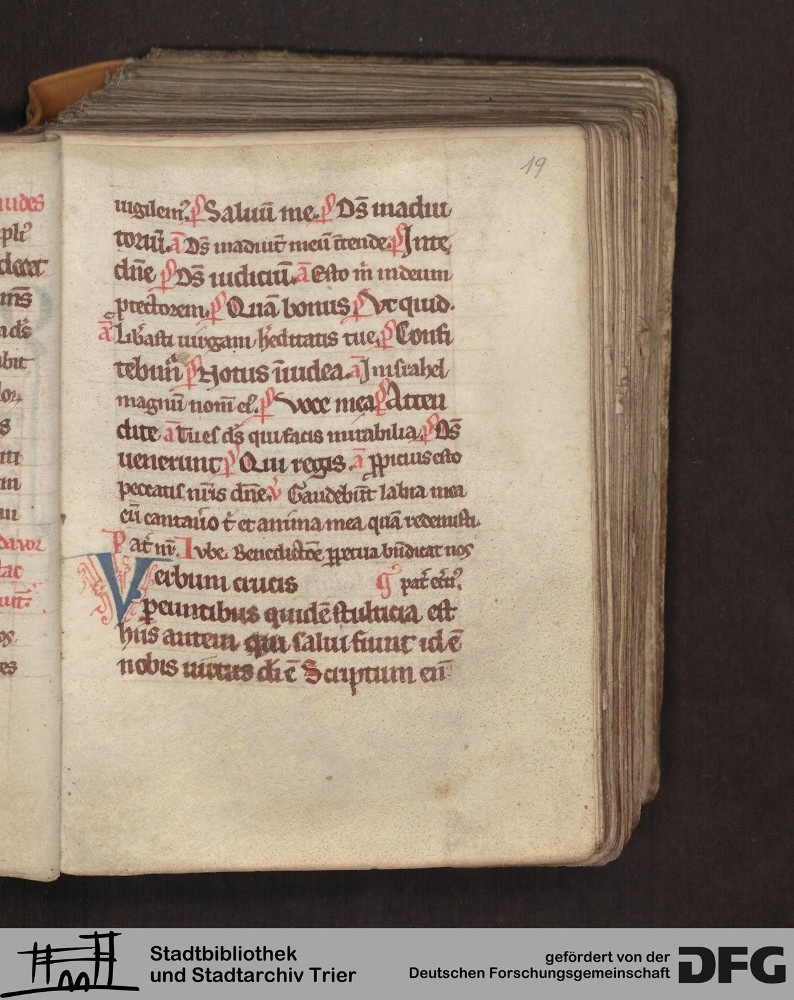 19
uigilem᷒. p̄s Saluū me. p̄s Ds̄ in adiu
toriū. a Ds̄ in adiut̄ meū ītende. p̄s In te
dn̄e p̄s Ds̄ iudiciū. a Esto m̄ in deum
ptectorem. p̄s Quā bonus p̄s Vt quid.
a Lib̄asti uirgam h̄editatis tue. p̄s Confi
tebim̄ p̄s Notus ī iudea. a In israhel
magnū nom̄ eī. p̄s Voce mea p̄s Atten
dite a Tu es ds̄ qui facis mirabilia. p̄s Ds̄
uenerunt p̄s Qui regis. a ꝓpicius esto
peccatis nr̄is dn̄e. v̄ Gaudebūt labia mea
cū cantau̅o t̄ et anima mea quā redemisti.
Pat̄ nr̄. Iube. Benedictōe ꝑpetua bn̄dicat nos
Verbum crucis pat̄ et̄n᷒.
pereuntibus quidē stulticia est
hiis autem qui salui fiunt id ē
nobis uirtus dī ē Scriptum en̄
Stadtbibliothek
und Stadtarchiv Trier
gefördert von der
Deutschen Forschungsgemeinschaft
DFG